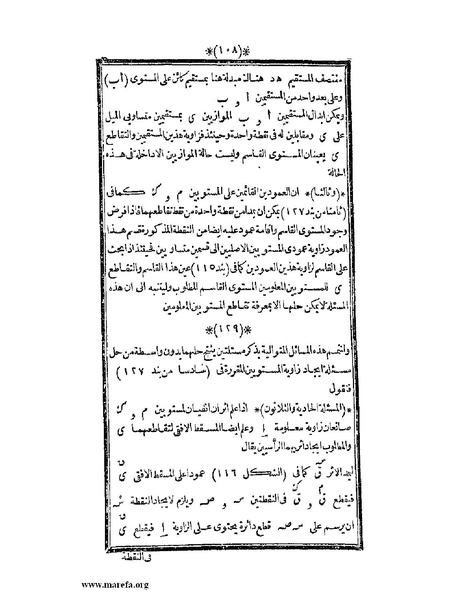 *(١٠٨)*
منتصف المستقيم هـ د هناك الة مبدلة هنا بمستقيم كائن على المستوى (أ ب)
وعلى بعد واحد من المستقيمين أ و ب
ويمكن ابدال المستقيمين أ و ب الموازيين ى بمستقيمين متساويى الميل
على ى ومقابلين له فى نقطة واحدة وحينئذ فزاوية هذين المستقيمين والتقاطع
ى يعينان المستوى القاسم وليست حالة الموازيين الا داخلة فى هذه
الحالة
*(وثالثا)* ان العمودين القائمين على المستويين م و ك كما فى
(ثامنا من بند ١٢٧) يمكن ان يمدا من نقطة واحدة من نقط تقاطعهما فاذا فرض
وجود المستوى القاسم واقامة عمود عليه ايضا من النقطة المذكورة قسم هذا
العمود زاوية عمودى المستويين الاصليين الى قسمين متساويين فحينئذ اذا بحث
على القاسم لزاوية هذين العمودين كما فى (بند ١١٥) عين هذا القاسم والتقاطع
ى للمستويين المعلومين المستوى القاسم المطلوب ولينتبه الى ان هذه
المسئلة لا يمكن حلها الا بمعرفة تقاطع المستويين المعلومين
*(١٢٩)*
ولنتمم هذه المسائل المتوالية بذكر مسئلتين ينتج حلهما بدون واسطة من حل
مسئلة ايجاد زاوية المستويين المقررة فى (سادسا من بند ١٢٧)
فنقول
*(المسئلة الحادية والثلاثون)* اذا علم اثران افقيان لمستويين م و ك
صانعان زاوية معلومة أ وعلم ايضا المسقط الافقى لتقاطعهما ى
والمطلوب ايجاد اثريهما الرأسيين يقال
ليمد الاثر ق كما فى (الشكل ١١٦) عمودا على المسقط الافقى ى
فيقطع م و ك فى النقطتين س و ص ويلزم لايجاد النقطة
ان يرسم على س ص قطع دائرة يحتوى على الزاوية أ فيقطع ى
فى النقطة
www.marefa.org